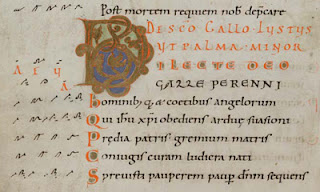 Post mortem requiem nob depcare
DE SCO GALLO IVSTVS
VT PALMA MINOR
DILECTE DEO
GALLE PERENNI
Hominib; q; & coetibus angelorum
Qui ihu xpi obediens arduę suasioni
Prędia patris gremium matris
Coniugis curam ludicra nati
Spreuisti pauperem paup dnm sequens